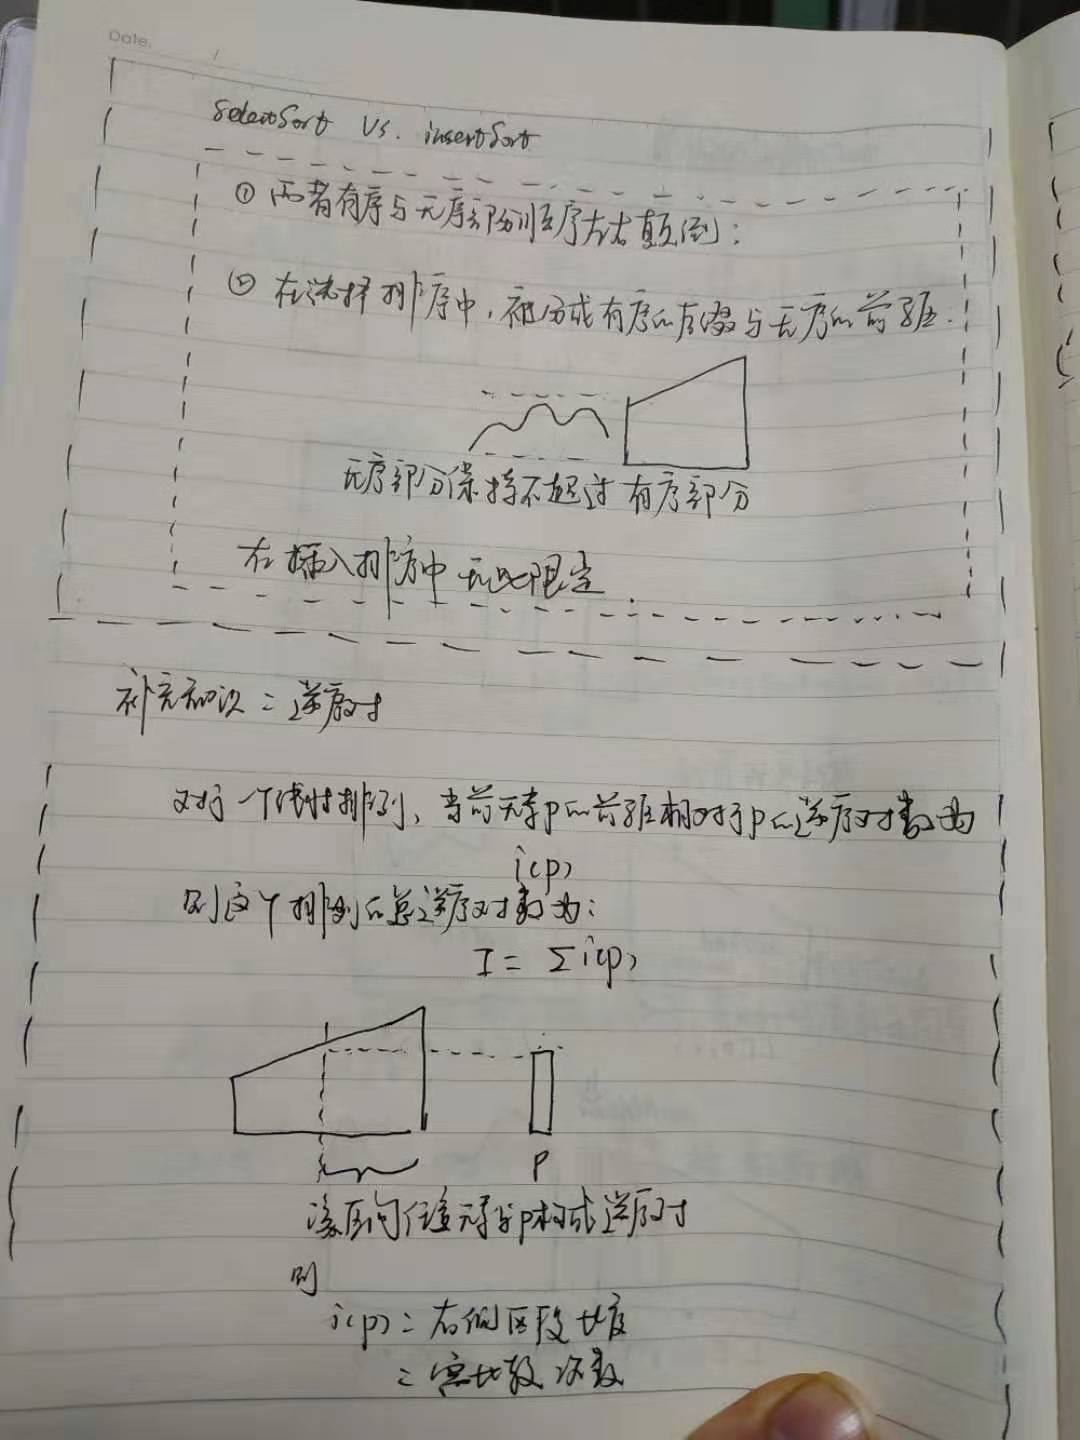 Date.
SelectSort Vs. insertSort
① 两者有序与无序部分顺序左右颠倒;
② 在选择排序中,被分成有序的后缀与无序的前缀.
无序部分保持不超过有序部分
在插入排序中无此限定.
补充知识:逆序对
对于一个线性排列,当前元素p的前缀相对于p的逆序对数为
i(p)
则这个排列的总逆序对数为:
I = Σi(p)
P
该区间任意元素与p构成逆序对
则
i(p) = 右侧区段长度
= 需比较次数